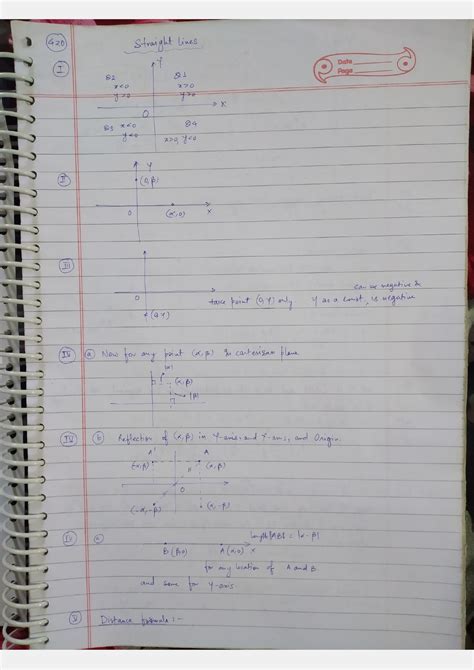 420
Straight Lines
Date
Page
I
Y
Q2
x<0
y>0
Q1
x>0
y>0
O
X
Q3 x<0
y<0
Q4
x>0, y<0
II
Y
(0,β)
O
(α,0)
X
III
O
can be negative &
take point (0,Y) only Y as a const, is negative
(0,Y)
IV a Now for any point (α,β) in cartesian plane
|α|
(α,β)
|β|
IV b Reflection of (α,β) in Y-axis, and X-axis, and Origin.
A' A
(-α,β) (α,β)
O
(-α,-β) (α,-β)
IV c length|AB| = |α-β|
B(β,0) A(α,0) X
for any location of A and B
and same for Y-axis.
V Distance formula :-